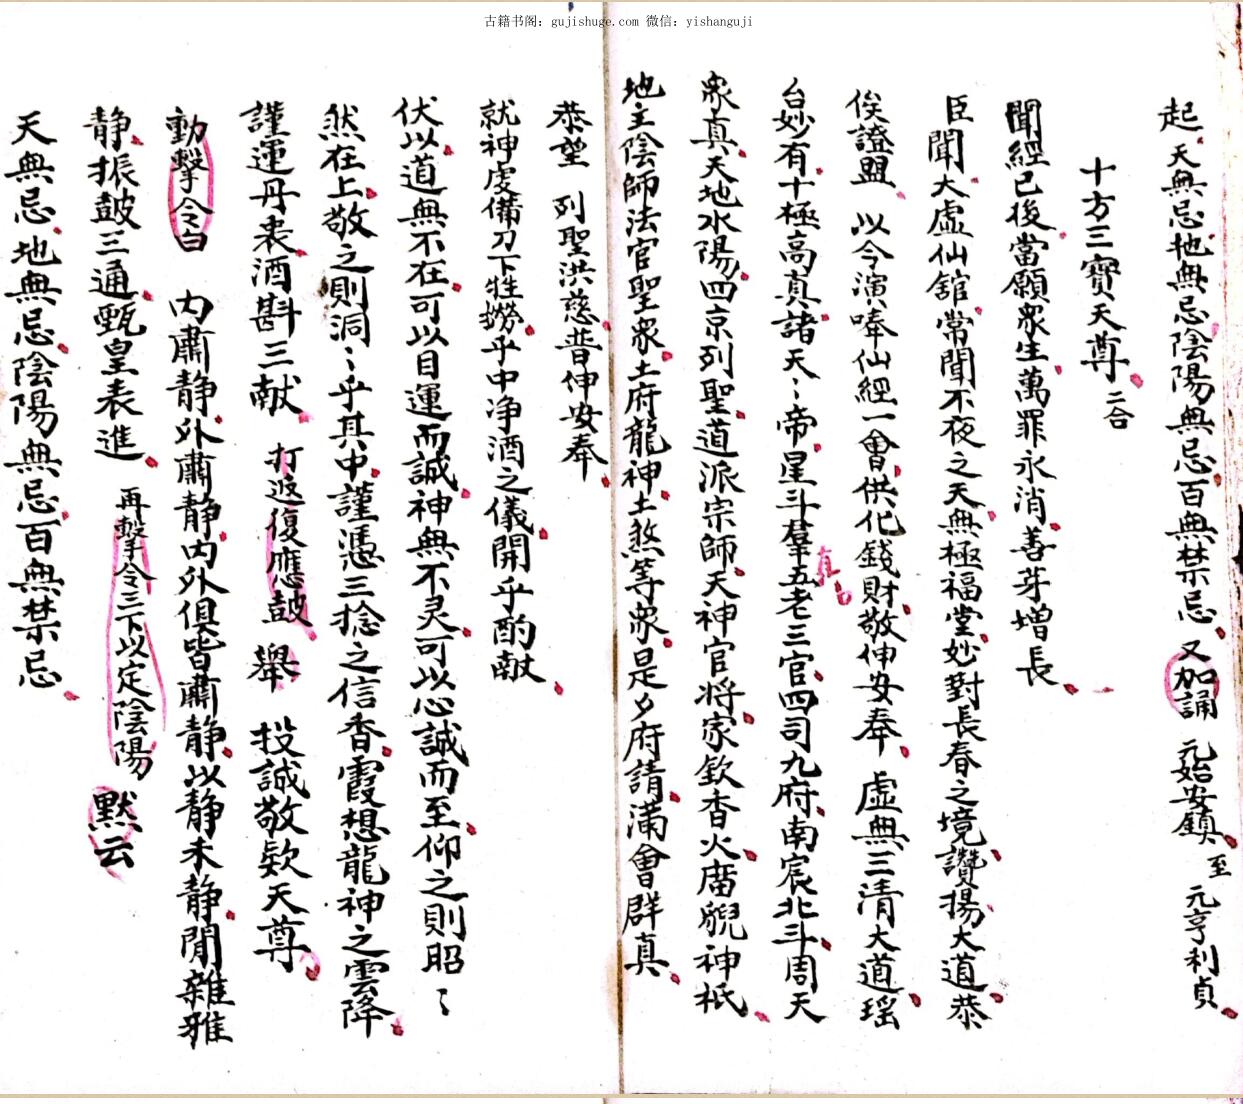 古籍书阁：gujishuge.com 微信：yishanguji
起天無忌地無忌陰陽無忌百無禁忌又加誦元始安鎮至元亨利貞
十方三寶天尊二合
聞經已後當願衆生萬罪永消善芽增長
臣聞大虛仙舘常聞不夜之天無極福堂妙對長春之境讚揚大道恭
俟證盟 以今演唪仙經一會供化錢財敬伸安奉 虛無三清大道瑶
台妙有十極高真諸天〻帝星斗羣真五老三官四司九府南宸北斗周天
衆真天地水陽四京列聖道派宗師天神官將家欽香火廚貎神祇
地主陰師法官聖衆土府龍神土煞等衆是夕府請滿會群真
恭望 列聖洪慈普伸安奉
就神虔備刀下牲撈乎中净酒之儀開乎酌献
伏以道無不在可以目運而誠神無不灵可以心誠而至仰之則昭〻
然在上敬之則洞〻乎其中謹憑三捻之信香霞想龍神之雲降
謹運丹衷酒斟三献 打返復應鼓 舉 投誠敬欵天尊
動擊令白 内肅静外肅静内外俱皆肅静以静未静閒雜雅
静振鼓三通甄皇表進 再擊令三下以定陰陽 默云
天無忌地無忌陰陽無忌百無禁忌